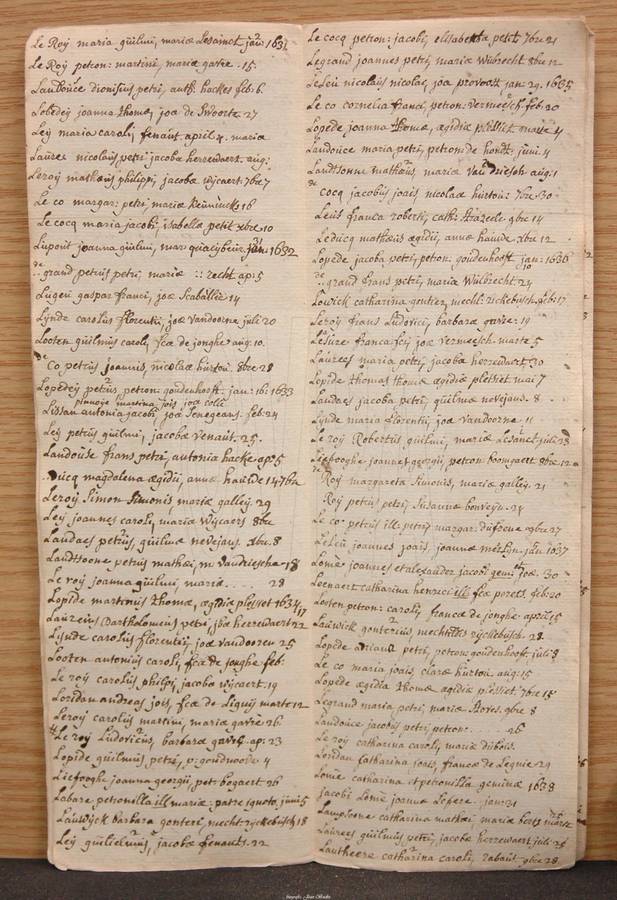 Le Roÿ maria guilmi, mariæ Lesainct jan: 1631
Le Roy petron: martini, mariæ gavre. 15.
Landouce dionisius petri, anth: hackes feb: 6
Lobedeÿ joanna thomæ, joæ de Swoorte 27
Leÿ maria caroli, fenaut april 4. mariæ
Laure nicolaus petri jacobæ herrewaert. aug:
Leroÿ mathæus philippi, jacobæ wÿcaert. 7bre 7
Le co margar: petri, mariæ 16
Le cocq maria jacobi, isabella petit xbre 10
Luport joanna guilmi, mar: jan: 1632
de grand petrus petri, mariæ recht ap: 5
Lugen gaspar franci, joæ Scabaillie 14
Lÿnde carolus florentii, joæ vandoorne juli 20
Looten guilmus caroli, fcæ de jonghe aug: 10.
de co petrus joannis, nicolaæ hurtou. 8bre 28
Lopedeÿ petrus, petron: goudenhooft. jan: 16: 1633
martina jois joæ colle
Lissan antonia jacobi, joæ Senegeans. feb: 24
Leÿ petrus guilmi, jacobæ venaut. 25.
Landouse frans petri, antonia hacke ap: 5
ducq magdalena ægidii, annæ hauwde 14 7br
Leroÿ Simon Simonis, mariæ galleÿ. 29
Leÿ joannes caroli, maria wÿcaers 8br
Landaes petrus, guilmæ nevejans. xbr. 8
Landtsoone petrus mathæi, m: Vandriesche 18
Le roÿ joanna guilmi, mariæ 28
Lopide martinus thomæ, ægidia plessiet 1634
17
Laureius Bartholomeus petri, joæ herrewaert 22
Lÿnde carolus florentii, joæ vandooren 25
Looten antonius caroli, fcæ de jonghe feb:
Le roÿ carolus philipi, jacoba wÿcaert. 19
Loridan andreas jois, fcæ de Liquiÿ marte 12
Leroÿ carolus martini, mariæ gavre 26
Le roÿ Ludovicus, barbaræ gavre ap: 23
Lopide guilmus petri, p: goudenoode 4
Liefooghe joanna georgii, pet: bogaert 26
Labare petronilla ill: mariæ: patre ignoto, junii 5
Lauwÿck barbara gonteri, mecht: rÿckebusch 18
Leÿ guilielmus, jacobæ fenauts. 22
Le cocq petron: jacobi, elisabetha petit 7bre 21
Legrand joannes petri, mariæ Wulbrecht 8bre 12
Leleu nicolaus nicolai, joæ provoost jan: 29. 1635
Le co cornelia franci, petron: vermeesch. feb: 20
Lopede joanna thomæ, ægidia plessiet marte 4
Landouce maria petri, petron: de hondt. juni. 4
Landtsonne mathæus, mariæ Van Driesch. aug: 1
de cocq jacobus joais nicolaæ hurtou: 7bre 30
Leus franca roberti, cath: Hazeele. 9bre 14
Leducq mathæus ægidii, annæ hauwde. xbre 12
Lopede jacoba petri, petron: goudenhooft jan: 1636
10
de grand frans petri, mariæ Wulbrecht. 24
Lowick catharina gontier, mecht: rickebusch. feb: 17
Leroÿ frans Ludovici, barbaræ gavre: 19
Lesure franca fcÿ, joæ vermeesch. marte 5
Laurees maria petri, jacoba herrewaert 30
Lopide thomas thomæ ægidiæ plessiet mai 7
Landaes jacoba petri, guilmæ nevejans. 8
Lÿnde maria florentii, joæ vandoorne 11
Le roÿ Robertus guilmi, mariæ Lesainct juli 23
Liefooghe joannes georgii, petron: boomgaert 8bre 12
de Roÿ margareta Simonis, mariæ galleÿ. 21
Roÿ petrus petri Susanna 24
Le co petrus ill: petri margar: dufrene xbre 27
Leleu joannes joais, joannæ jan: 1637
Lomé joannes et alexander jacobi gemi joæ. 30
Leenaert catharina henrici ill: fcæ feb: 20
Looten petron: caroli, francæ de jonghe april 15
Lauwick gonterius, mechtildis rÿckebusch. 28.
Lopede petri, petron: goudenhooft. juli 8
Le co maria joais, claræ hurtou. aug: 15
Lopede ægidia thomæ ægidia plessiet. 7bre 15
Legrand maria petri, mariæ xbre 8
Landouce jacobus petri, petron: 26
Le roÿ catharina caroli, mariæ dubois.
Loridan catharina joris, francæ de Legnie 29
Lomé catharina et petronilla geminæ 1638
jacobi Lomé joannæ Lefere. jan: 31
Lampsonne catharina mathæi mariæ 25 marte
Laurees guilmus petri, jacobæ herrewaert juli 25
Lautheere catharina caroli, rabaut 9bre 28.